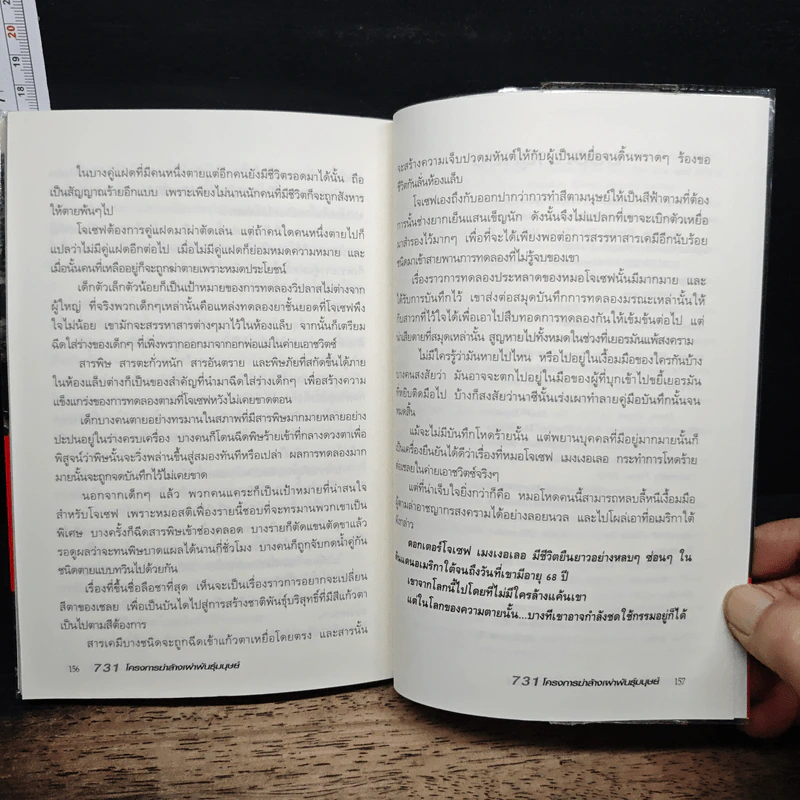 ในบางคู่แฝดที่มีคนหนึ่งตายแต่อีกคนยังมีชีวิตรอดมาได้นั้น ถือ
เป็นสัญญาณร้ายอีกแบบ เพราะเพียงไม่นานนักคนที่มีชีวิตก็จะถูกสังหาร
ให้ตายพ้นๆไป
โจเซฟต้องการคู่แฝดมาผ่าตัดเล่น แต่ถ้าคนใดคนหนึ่งตายไปก็
แปลว่าไม่มีคู่แฝดอีกต่อไป เมื่อไม่มีคู่แฝดก็ย่อมหมดความหมาย และ
เมื่อนั้นคนที่เหลืออยู่ก็จะถูกฆ่าตายเพราะหมดประโยชน์
เด็กตัวเล็กตัวน้อยก็เป็นเป้าหมายของการทดลองวิปลาสไม่ต่างจาก
ผู้ใหญ่ ที่จริงพวกเด็กๆเหล่านั้นคือแหล่งทดลองยาชั้นยอดที่โจเซฟพึง
ใจไม่น้อย เขามักจะสรรหาสารต่างๆมาไว้ในห้องแล็บ จากนั้นก็เตรียม
ฉีดใส่ร่างของเด็กๆ ที่เพิ่งพรากออกมาจากอกพ่อแม่ในค่ายเอาชวิตซ์
สารพิษ สารตะกั่วหนัก สารอันตราย และพิษภัยที่สกัดขึ้นได้ภาย
ในห้องแล็บต่างก็เป็นของสำคัญที่นำมาฉีดใส่ร่างเด็กๆ เพื่อสร้างความ
แข็งแกร่งของการทดลองตามที่โจเซฟหวังไม่เคยขาดตอน
เด็กบางคนตายอย่างทรมานในสภาพที่มีสารพิษมากมายหลายอย่าง
ปะปนอยู่ในร่างครบเครื่อง บางคนก็โดนฉีดพิษร้ายเข้าที่กลางดวงตาเพื่อ
พิสูจน์ว่าพิษนั้นจะวิ่งพล่านขึ้นสู่สมองทันทีหรือเปล่า ผลการทดลองมาก
มายนั้นจะถูกจดบันทึกไว้ไม่เคยขาด
นอกจากเด็กๆ แล้ว พวกคนแคระก็เป็นเป้าหมายที่น่าสนใจ
สำหรับโจเซฟ เพราะหมอสติเพื่องรายนี้ชอบที่จะทรมานพวกเขาเป็น
พิเศษ บางครั้งก็ฉีดสารพิษเข้าช่องคลอด บางรายก็ตัดแขนตัดขาแล้ว
รอดูผลว่าจะทนพิษบาดแผลได้นานกี่ชั่วโมง บางคนก็ถูกจับกดน้ำคู่กัน
ชนิดตายแบบทวินไปด้วยกัน
เรื่องที่ขึ้นชื่อลือชาที่สุด เห็นจะเป็นเรื่องราวการอยากจะเปลี่ยน
สีตาของเชลย เพื่อเป็นบันไดไปสู่การสร้างชาติพันธุ์บริสุทธิ์ที่มีสีแก้วตา
เป็นไปตามสีต้องการ
สารเคมีบางชนิดจะถูกฉีดเข้าแก้วตาเหยื่อโดยตรง และสารนั้น
156 731 โครงการฆ่าล้างเผ่าพันธุ์มนุษย์
จะสร้างความเจ็บปวดมหันต์ให้กับผู้เป็นเหยื่อจนดิ้นพราดๆ ร้องขอ
ชีวิตกันลั่นห้องแล็บ
โจเซฟเองถึงกับออกปากว่าการทำสีตามนุษย์ให้เป็นสีฟ้าตามที่ต้อง
การนั้นช่างยากเย็นแสนเข็ญนัก ดังนั้นจึงไม่แปลกที่เขาจะเบิกตัวเหยื่อ
มาสำรองไว้มากๆ เพื่อที่จะได้เพียงพอต่อการสรรหาสารเคมีอีกนับร้อย
ชนิดมาเข้าสายพานการทดลองที่ไม่รู้จบของเขา
เรื่องราวการทดลองประหลาดของหมอโจเซฟนั้นมีมากมาย และ
ได้รับการบันทึกไว้ เขาส่งต่อสมุดบันทึกการทดลองมรณะเหล่านั้นให้
กับสาวกที่ไว้ใจได้เพื่อเอาไปสืบทอดการทดลองกันให้เข้มข้นต่อไป แต่
น่าเสียดายที่สมุดเหล่านั้น สูญหายไปทั้งหมดในช่วงที่เยอรมันแพ้สงคราม
ไม่มีใครรู้ว่ามันหายไปไหน หรือไปอยู่ในเงื้อมมือของใครกันบ้าง
บางคนสงสัยว่า มันอาจจะตกไปอยู่ในมือของผู้ที่บุกเข้าไปขยี้เยอรมัน
ที่หยิบติดมือไป บ้างก็สงสัยว่านาซีนั้นเร่งเผาทำลายคู่มือบันทึกนั้นจน
หมดสิ้น
แม้จะไม่มีบันทึกโหดร้ายนั้น แต่พยานบุคคลที่มีอยู่มากมายนั้นก็
เป็นเครื่องยืนยันได้ดีว่าเรื่องที่หมอโจเซฟ เมงเงอเลอ กระทำการโหดร้าย
ต่อเชลยในค่ายเอาชวิตซ์จริงๆ
แต่ที่น่าเจ็บใจยิ่งกว่าก็คือ หมอโหดคนนี้สามารถหลบลี้หนีเงื้อมมือ
ผู้ตามล่าอาชญากรสงครามได้อย่างลอยนวล และไปโผล่เอาที่อเมริกาใต้
ดังกล่าว
ดอกเตอร์โจเซฟ เมงเงอเลอ มีชีวิตยืนยาวอย่างหลบๆ ซ่อนๆ ใน
ดินแดนอเมริกาใต้จนถึงวันที่เขามีอายุ 68 ปี
เขาจากโลกนี้ไปโดยที่ไม่มีใครล้างแค้นเขา
แต่ในโลกของความตายนั้น...บางทีเขาอาจกำลังชดใช้กรรมอยู่ก็ได้
731 โครงการฆ่าล้างเผ่าพันธุ์มนุษย์ 157
20
19
18